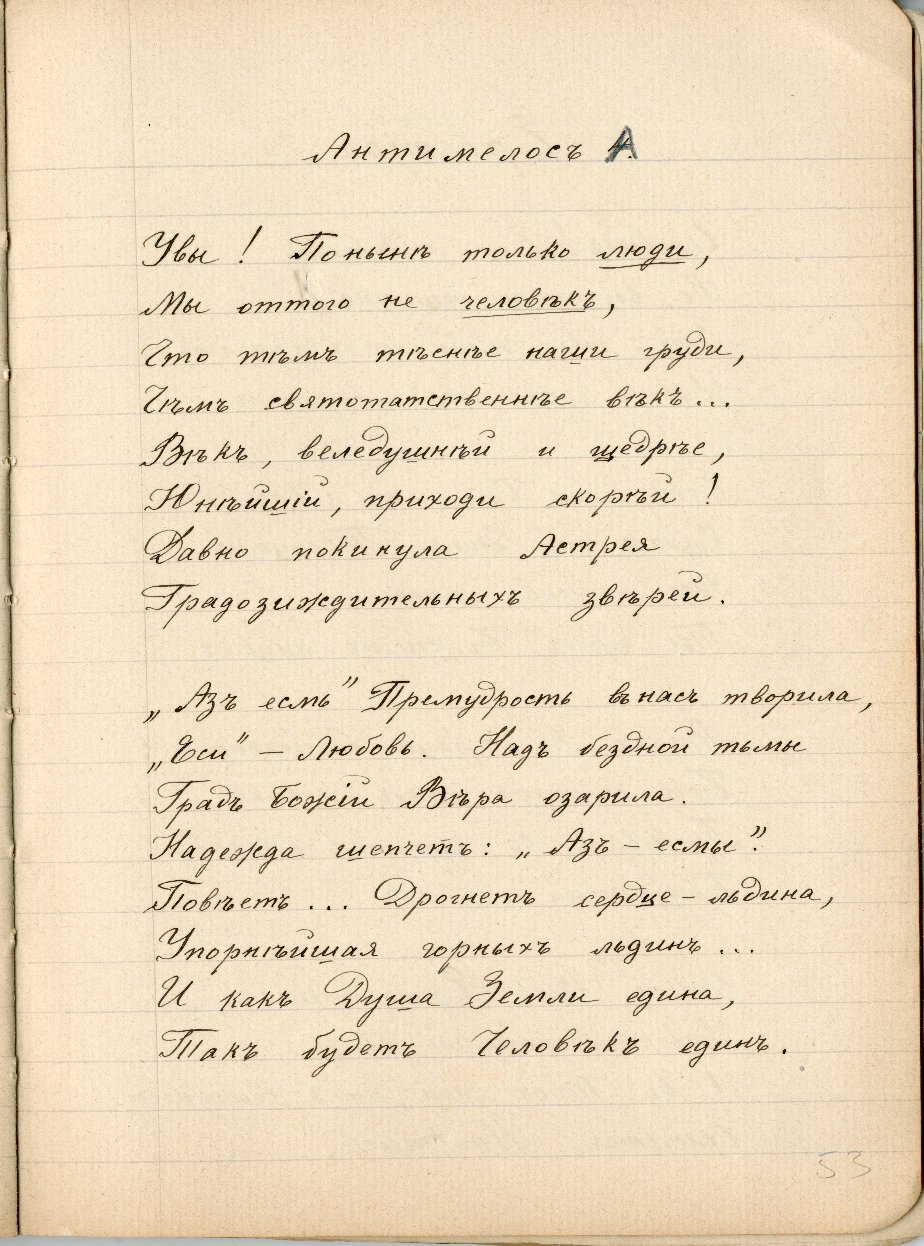 Антимелосъ А.
Увы! Понынѣ только люди,
Мы оттого не человѣкъ,
Что тѣмъ тѣснѣе наши груди,
Чѣмъ святотатственнѣе вѣкъ...
Вѣкъ, веледушнѣй и щедрѣе,
Юнѣйшій, приходи скорѣй!
Давно покинула Астрея
Градозиждительныхъ звѣрей.
„Азъ есмь” Премудрость въ насъ творила,
„Еси” – Любовь. Надъ бездной тьмы
Градъ Божій Вѣра озарила.
Надежда шепчетъ: „Азъ – есмы”.
Повѣетъ... Дрогнетъ сердце – льдина,
Упорнѣйшая горныхъ льдинъ...
И какъ Душа Земли едина,
Такъ будетъ Человѣкъ единъ.
53